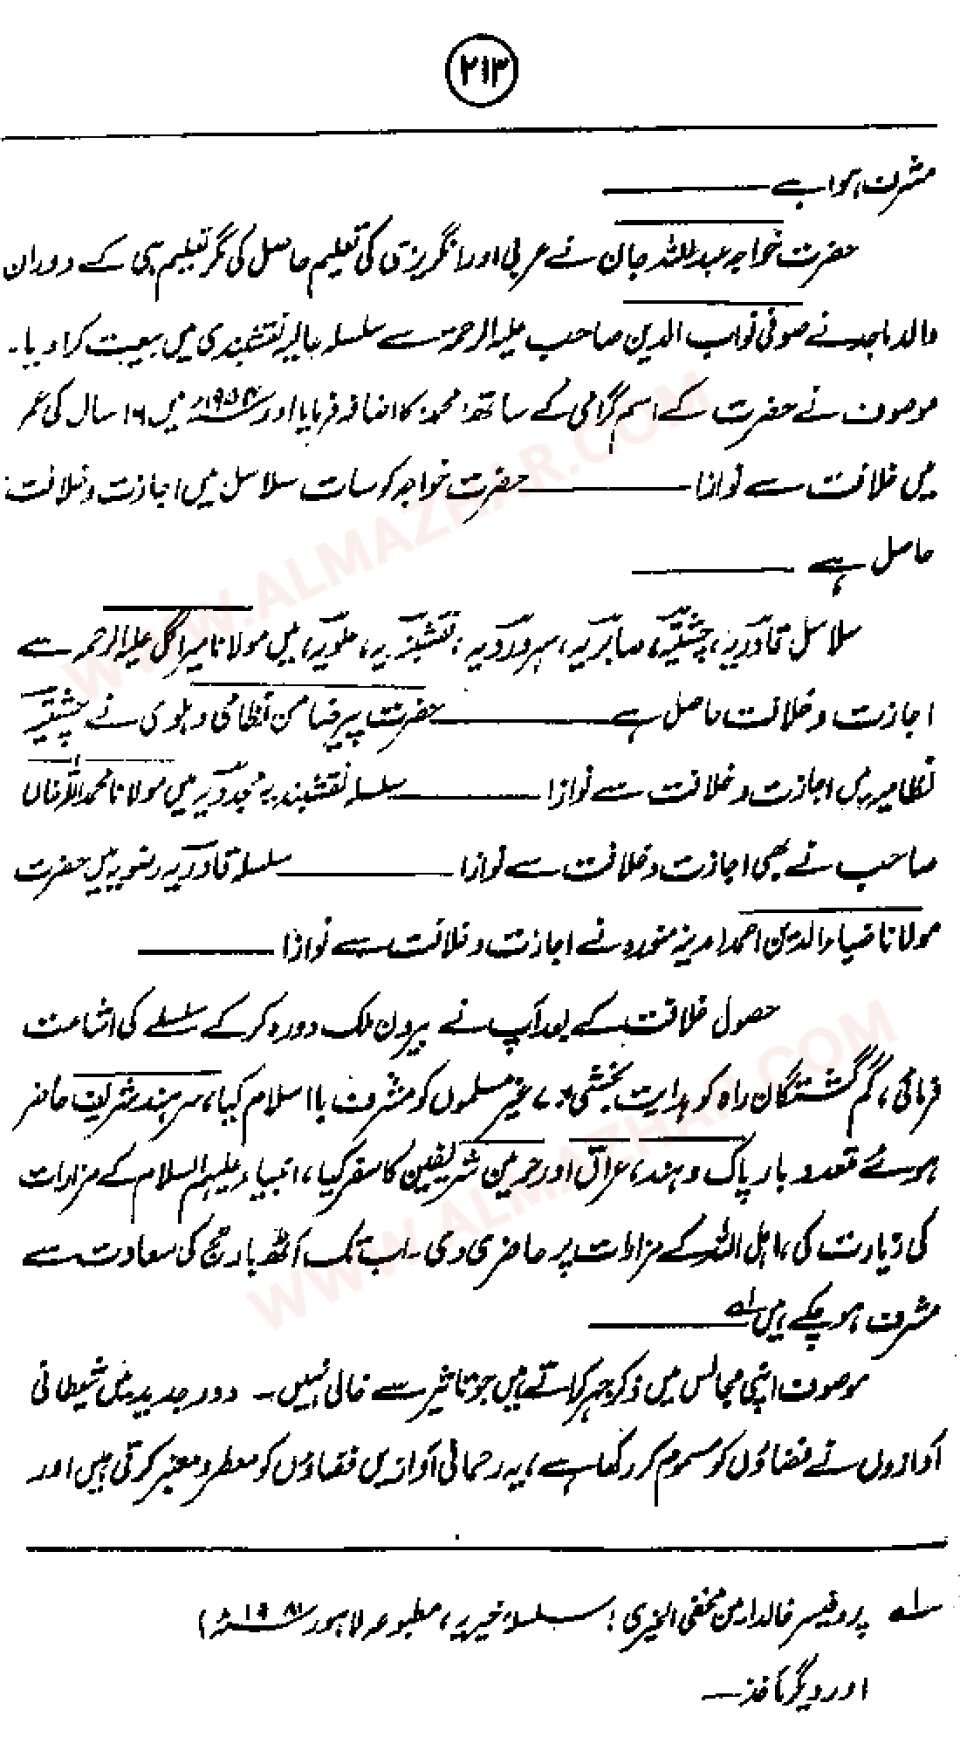 ۲۱۳
مشرف ہوا ہے ———
حضرت خواجہ عبداللہ جان نے عربی اور انگریزی کی تعلیم حاصل کی مگر تعلیم ہی کے دوران
والد ماجد نے صوفی نواب الدین صاحب علیہ الرحمۃ سے سلسلہ عالیہ نقشبندی میں بیعت کرا دیا۔
موصوف نے حضرت کے اسم گرامی کے ساتھ 'محمد' کا اضافہ فرمایا اور میں ۱۶ سال کی عمر
میں خلافت سے نوازا ——— حضرت خواجہ کو سات سلاسل میں اجازت و خلافت
حاصل ہے ———
سلاسل قادریہ، چشتیہ، صابریہ، سہروردیہ، نقشبندیہ، علویہ، میں مولانا میرا گل علیہ الرحمہ سے
اجازت و خلافت حاصل ہے ——— حضرت پیر ضامن نظامی دہلوی نے چشتیہ
نظامیہ میں اجازت و خلافت سے نوازا ——— سلسلہ نقشبندیہ مجددیہ میں مولانا محمد اللہ خاں
صاحب نے بھی اجازت و خلافت سے نوازا ——— سلسلہ قادریہ رضویہ میں حضرت
مولانا ضیاء الدین احمد مدینہ منورہ نے اجازت و خلافت سے نوازا ———
حصول خلافت کے بعد آپ نے بیرون ملک دورہ کر کے سلسلے کی اشاعت
فرمائی، گم گشتگان راہ کو ہدایت بخشی، غیر مسلموں کو مشرف با اسلام کیا، سرہند شریف حاضر
ہوئے متعدد بار پاک و ہند، عراق اور حرمین شریفین کا سفر کیا، انبیاء علیہم السلام کے مزارات
کی زیارت کی، اہل اللہ کے مزارات پر حاضری دی۔ اب تک آٹھ بار حج کی سعادت سے
مشرف ہو چکے ہیں ۱؎ ———
موصوف اپنی مجالس میں ذکر جہر کراتے ہیں جو تاثیر سے خالی نہیں۔ دور جدید میں شیطانی
آوازوں نے فضاؤں کو مسموم کر رکھا ہے، یہ رحمانی آوازیں فضاؤں کو معطر و معنبر کرتی ہیں اور
۱؎ پروفیسر خالد امین مخفی الخیری : سلسلہ خیریہ، مطبوعہ لاہور ۱۹۸۱ء)
اور دیگر مآخذ —
WWW.ALMAZHAR.COM
WWW.ALMAZHAR.COM